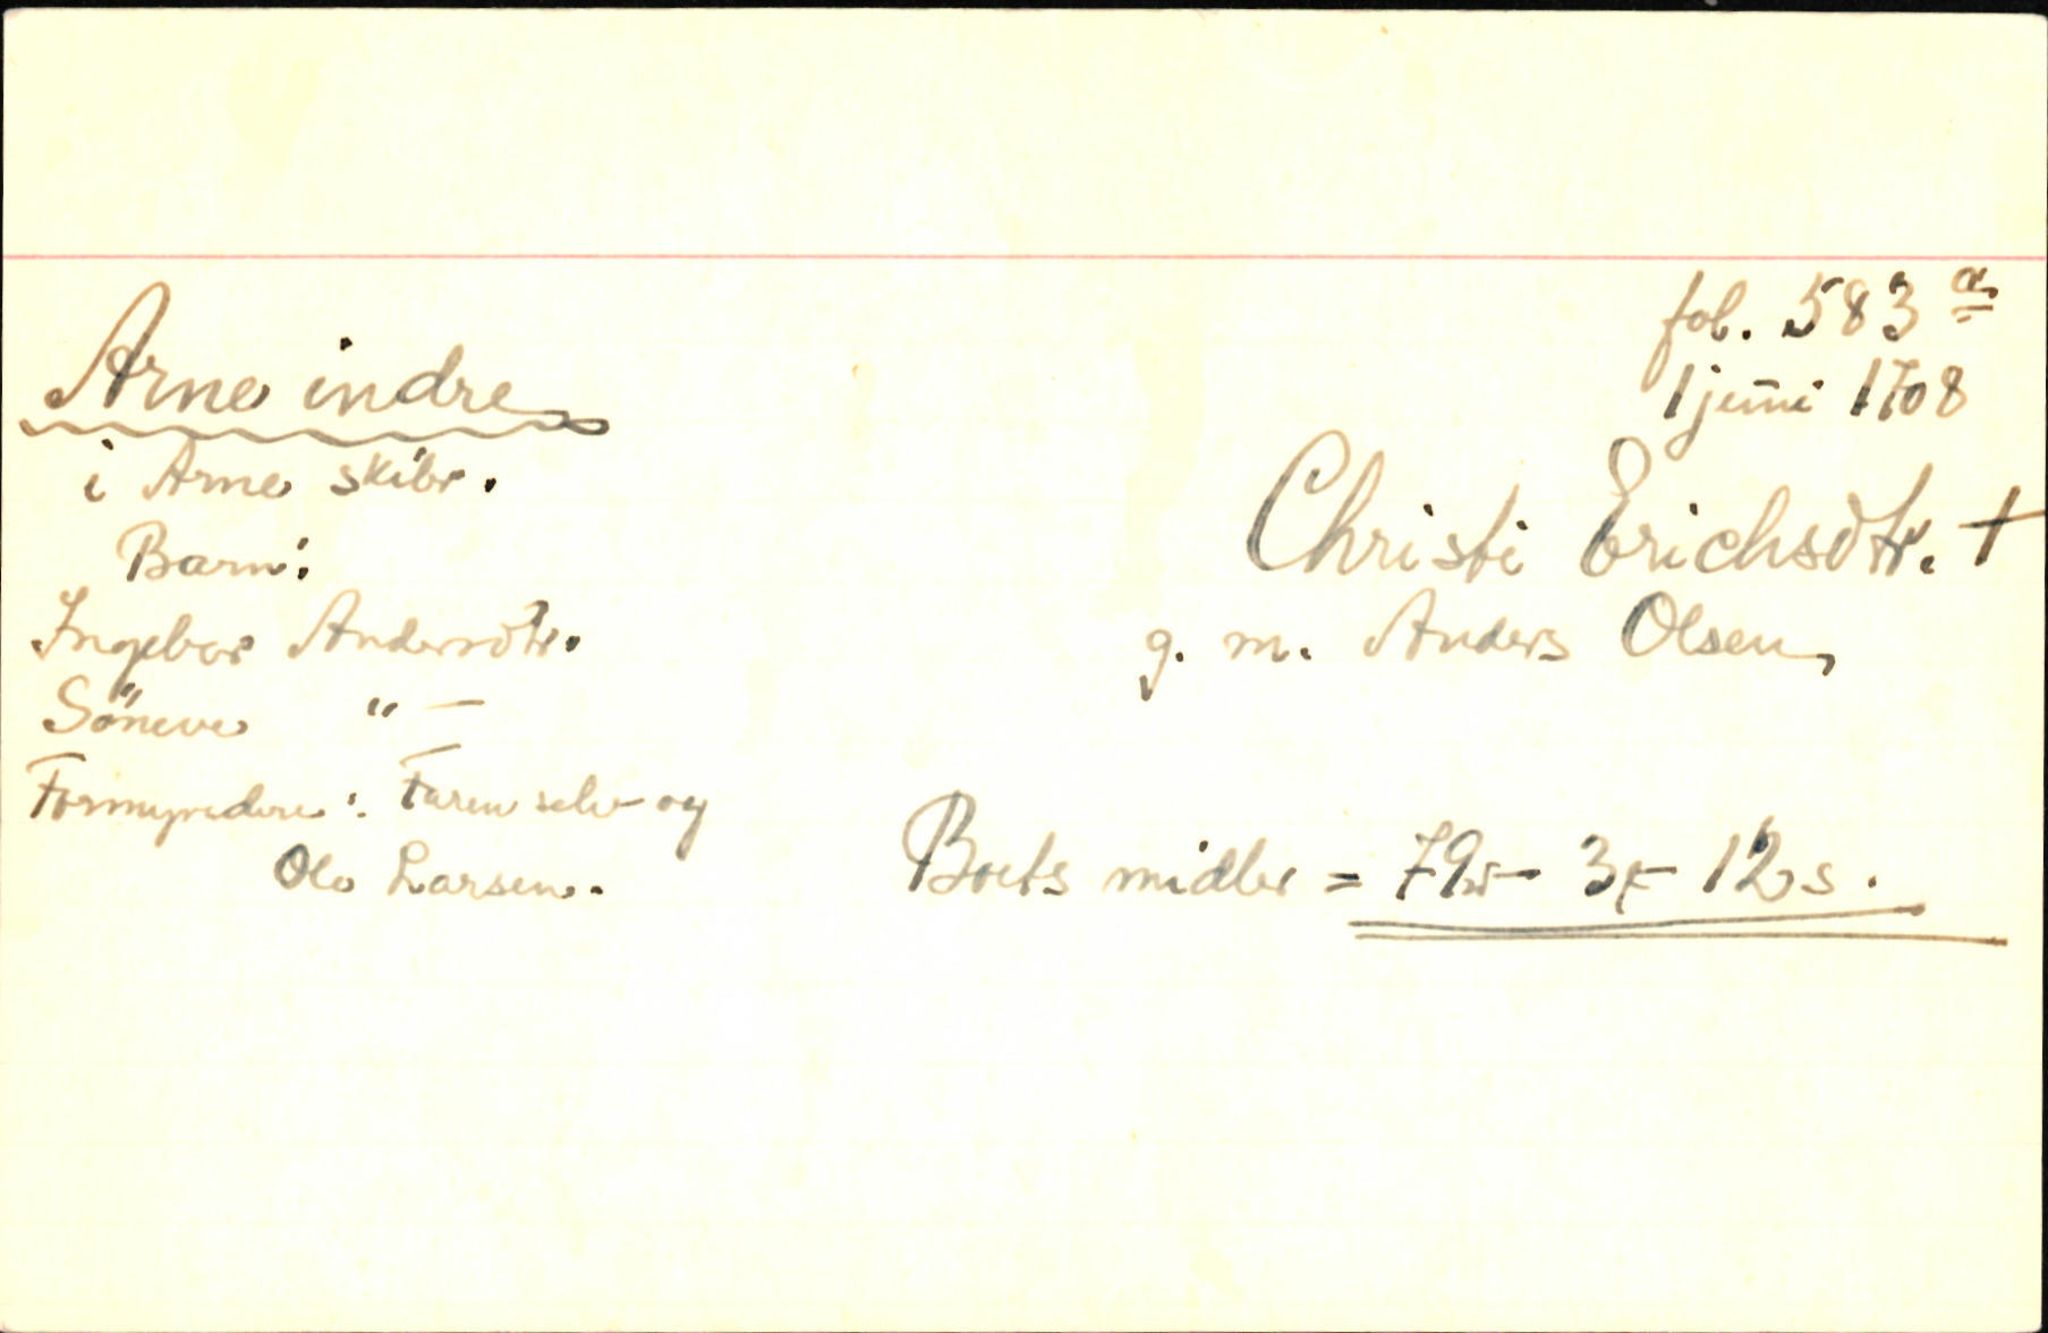 fol. 583 a
1 juni 1708
Arne indre
i Arne skibr.
Christi Erichsdtr. †
Barn:
g. m. Anders Olsen,
Ingebor Andersdtr.
Söneve " —
Formyndere: Faren selv og
Ole Larsen.
Boets midler = 79 - 3 - 12 s.